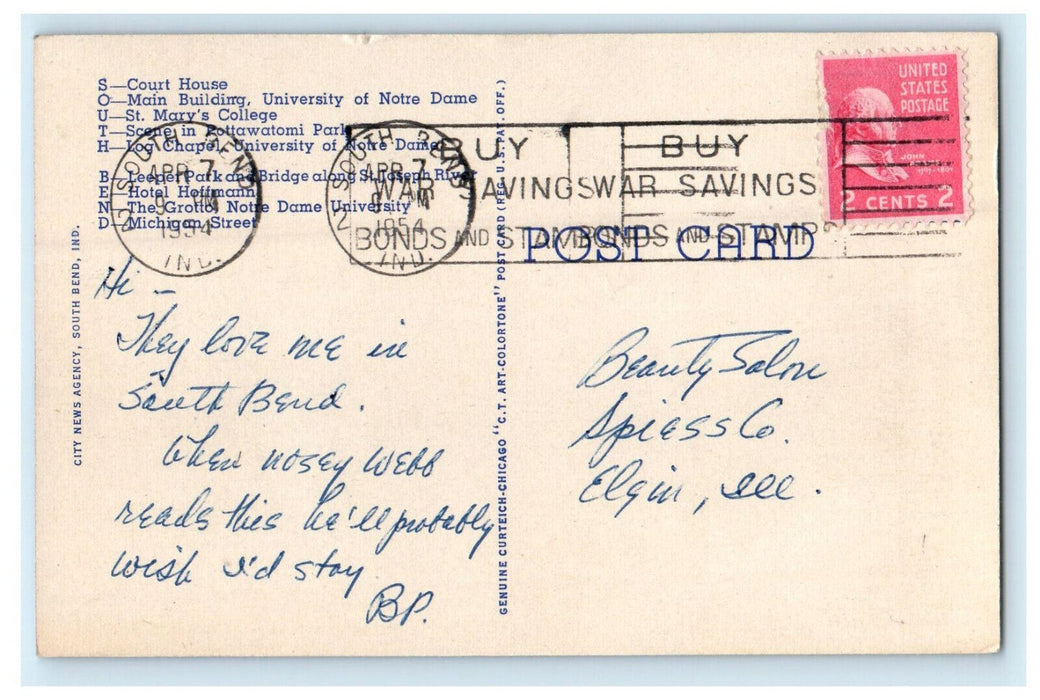 S—Court House
O—Main Building, University of Notre Dame
U—St. Mary's College
T—Scene in Pottawatomi Park
H—Log Chapel, University of Notre Dame
B—Leeper Park and Bridge along St. Joseph River
E—Hotel Hoffmann
N—The Grotto, Notre Dame University
D—Michigan Street
SOUTH BEND
APR 7
9
1954
IND.
SOUTH BEND
APR 7
1954
IND.
BUY
WAR SAVINGS
BONDS AND STAMPS
BUY
WAR SAVINGS
BONDS AND STAMPS
UNITED
STATES
POSTAGE
JOHN
2 CENTS 2
POST CARD
CITY NEWS AGENCY, SOUTH BEND, IND.
GENUINE CURTEICH-CHICAGO "C.T. ART-COLORTONE" POST CARD (REG. U.S. PAT. OFF.)
Hi —
They love me in
South Bend.
When nosey Webb
reads this he'll probably
wish I'd stay
B.P.
Beauty Salon
Spiess Co.
Elgin, Ill.